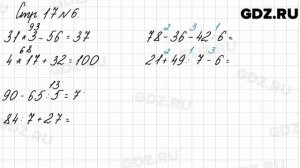 GDZ.RU
Стр. 17 № 6.
93
31 * 3 - 56 = 37
68
4 * 17 + 32 = 100
2 3 1
78 - 36 - 42 : 6 =
2 1 3
21 + 49 : 7 - 6 =
13
90 - 65 : 5 = 7
84 : 7 + 27 =